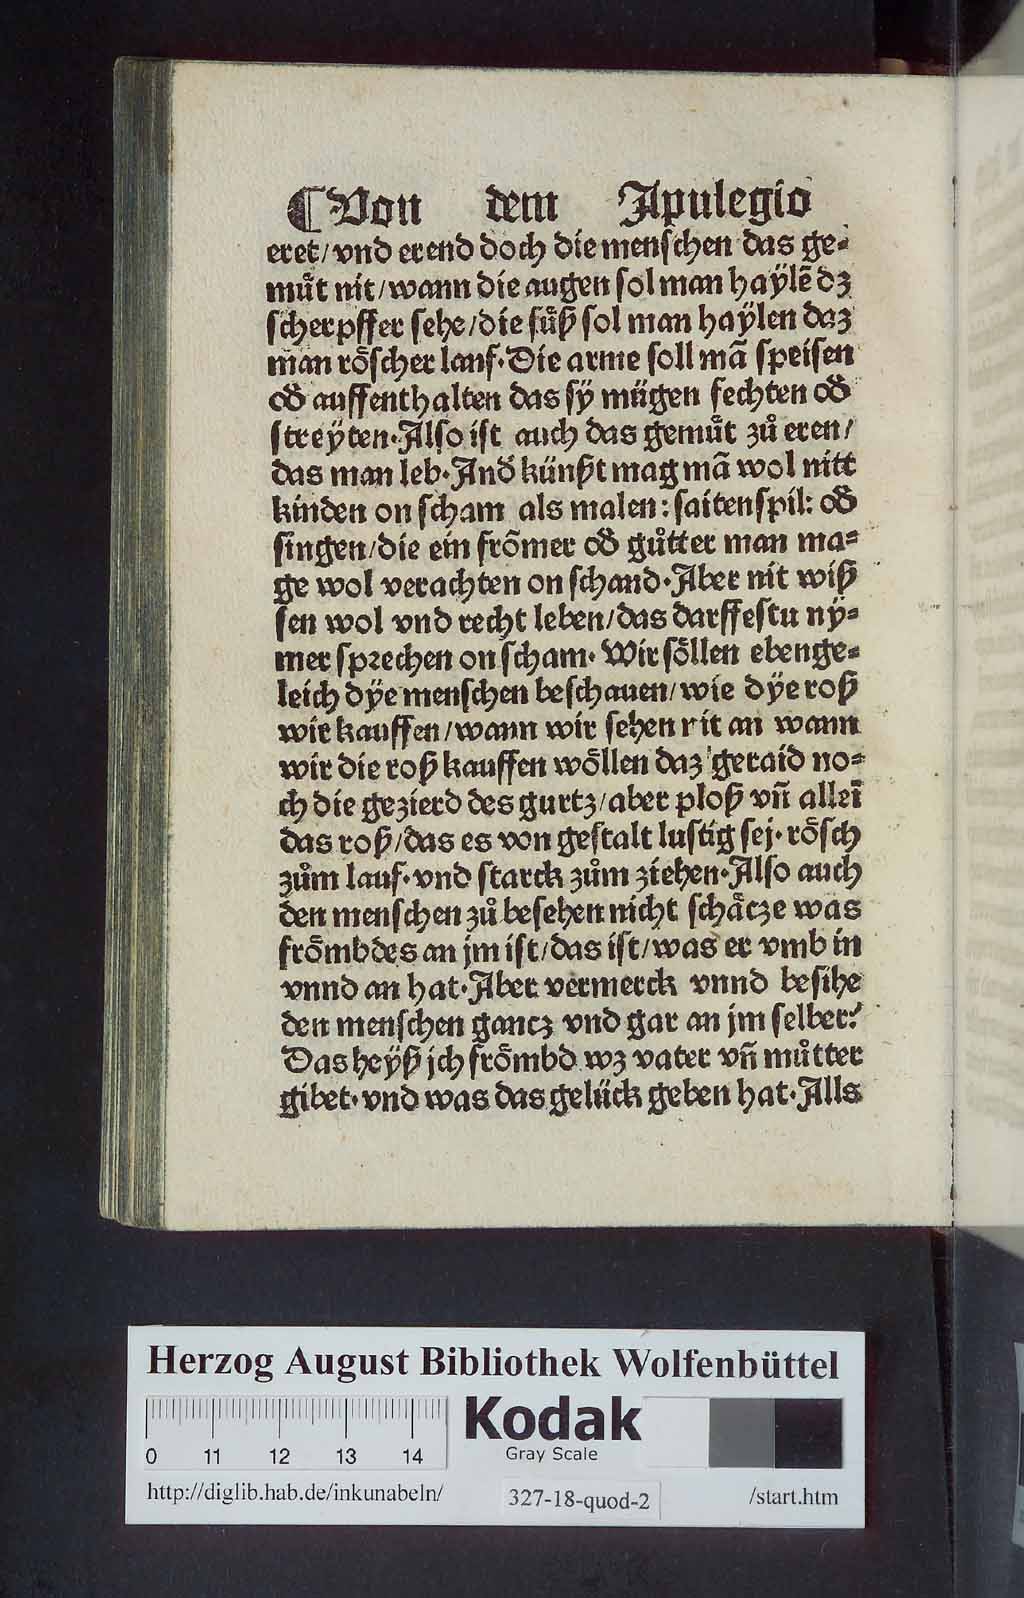 ¶Von dem Apulegio
eret/ vnd erend doch die menschen das ge⸗
muͤt nit/ wann die augen sol man haÿlē dz
scherpffer sehe/ die fuͤß sol man haÿlen daz
man roͤscher lauf. Die arme soll mā speisen
od̕ auffenthalten das sÿ mügen fechten od̕
streÿten. Also ist auch das gemuͤt zů eren/
das man leb. And̕ künst mag mā wol nitt
kinden on scham als malen: saitenspil: od̕
singen/ die ein froͤmer od̕ guͦtter man ma⸗
ge wol verachten on schand. Aber nit wiß
sen wol vnd recht leben/ das darffestu nÿ⸗
mer sprechen on scham. Wir soͤllen ebenge⸗
leich dÿe menschen beschauen/ wie dÿe roß
wir kauffen/ wann wir sehen nit an wann
wir die roß kauffen woͤllen daz geraid no⸗
ch die gezierd des gurtz/ aber ploß vñ alleī
das roß/ das es von gestalt lustig sej. roͤsch
zům lauf. vnd starck zům ziehen. Also auch
den menschen zů besehen nicht schaͤcze was
froͤmbdes an jm ist/ das ist/ was er vmb in
vnnd an hat. Aber vermerck vnnd besihe
den menschen gancz vnd gar an jm selber:
Das heÿß jch froͤmbd wz vater vñ muͦtter
gibet. vnd was das gelück geben hat. Alls
Herzog August Bibliothek Wolfenbüttel
Kodak
Gray Scale
0 11 12 13 14
http://diglib.hab.de/inkunabeln/ 327-18-quod-2 /start.htm